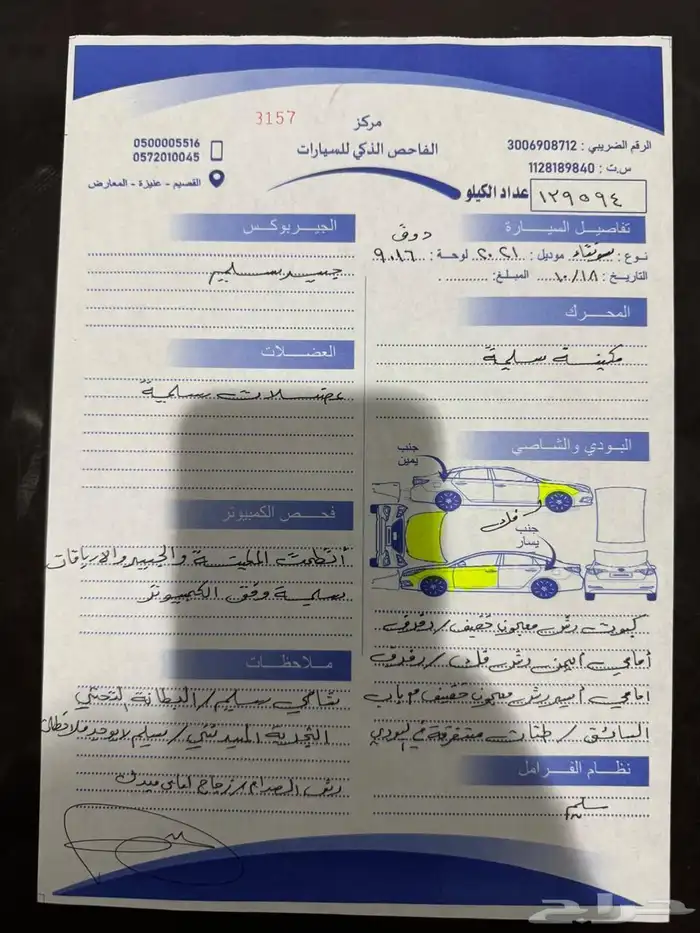 3157
مركز
الفاحص الذكي للسيارات
0500005516
0572010045
القصيم - عنيزة - المعارض
الرقم الضريبي : 3006908712
س.ت : 1128189840
عداد الكيلو ١٢٩٥٩٤
تفاصيل السيارة
نوع : سوناتا موديل : ٢٠٢١ لوحة : ٩٠١٦
التاريخ : ١٠/١٨ المبلغ :
المحرك
مكينة سليمة
البودي والشاصي
جنب يمين
فك
جنب يسار
كبوت رش معجون خفيف / رفرف
أمامي أيمن رش فك / رفرف
امامي أيسر رش معجون خفيف + باب
السائق / طقات متفرقة في البودي
نظام الفرامل
سليم
الجيربوكس
جيير سليم
العضلات
عضلات سليمة
فحص الكمبيوتر
أنظمة المكينة والجيير والارباقات
سليمة وفق الكمبيوتر
ملاحظات
شاصي سليم / البطانة التحتي
رش الصدام / زجاج امامي مبدل
حراج